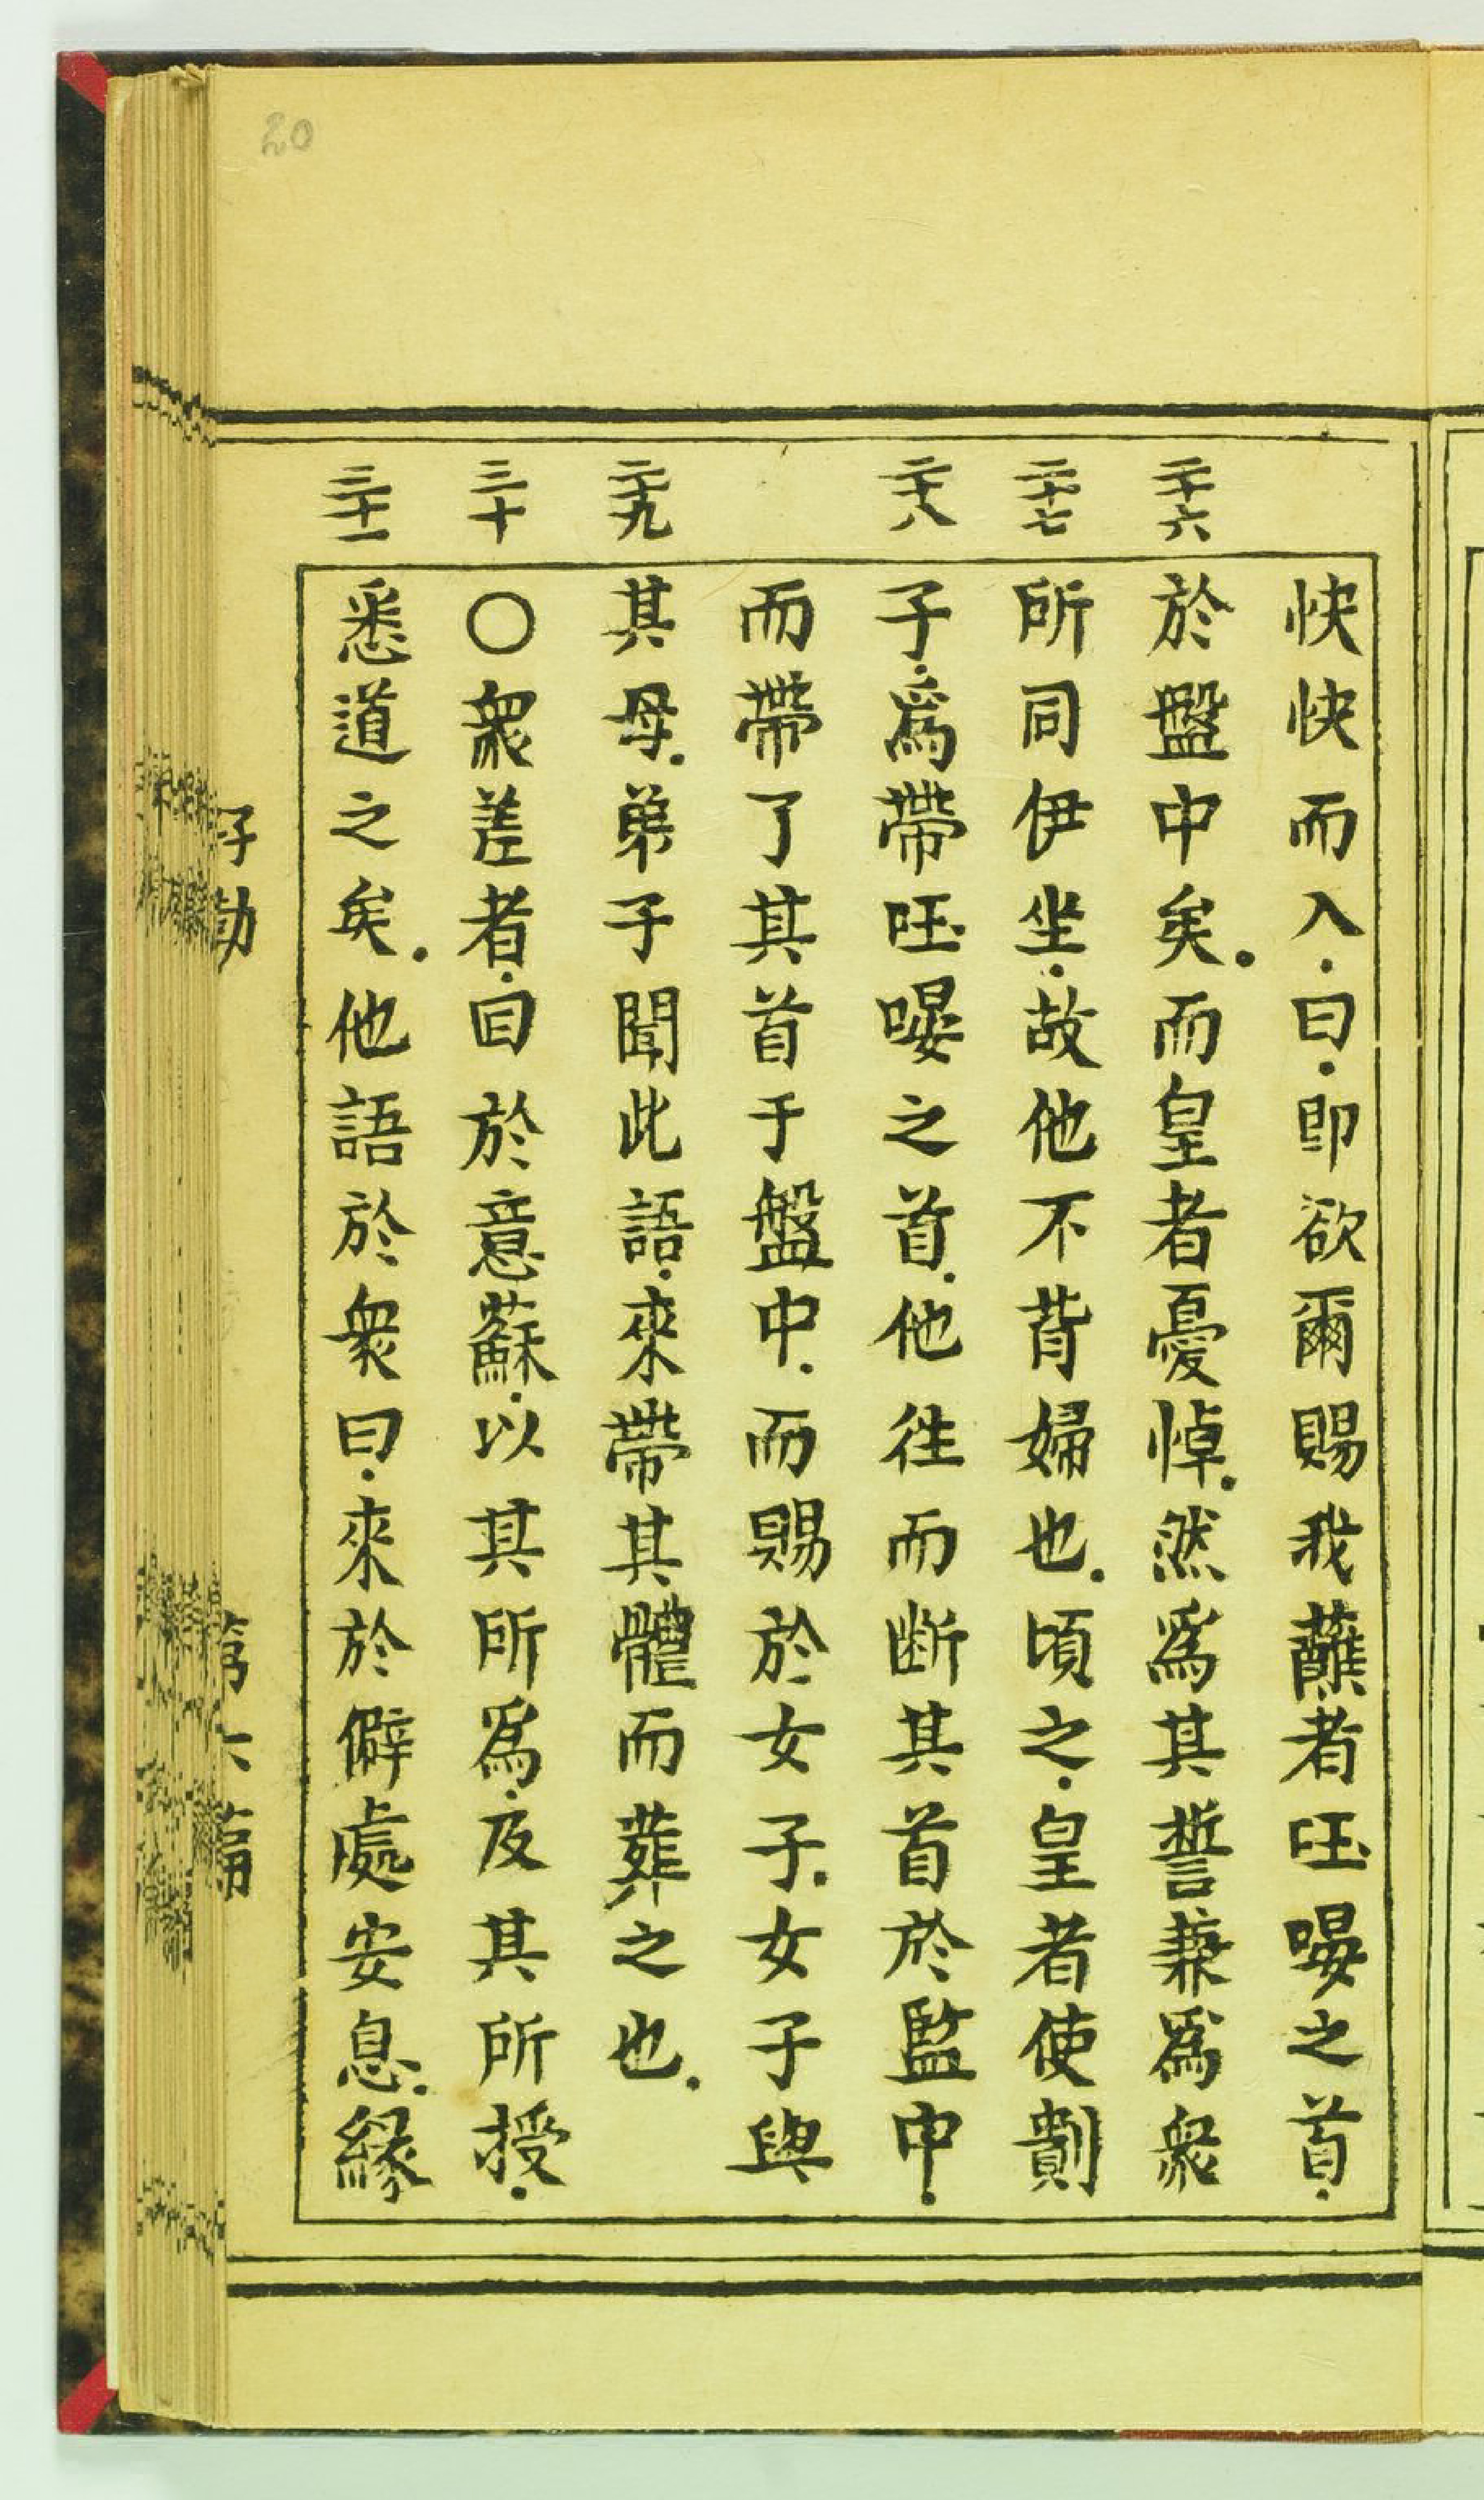 20
快快而入.曰.即欲爾賜我蘸者𠵽㗒之首.
二十六
於盤中矣.而皇者憂悼.然爲其誓兼爲衆
二十七
所同伊坐.故他不背婦也.頃之.皇者使劊
二十八
子.爲帶𠵽㗒之首.他往而断其首於監中.
而帶了其首于盤中.而賜於女子.女子與
二十九
其母.弟子聞此語.來帶其體而葬之也.
三十
〇衆差者.囘於意蘇.以其所爲.及其所授.
三十一
悉道之矣.他語於衆曰.來於僻處安息.緣